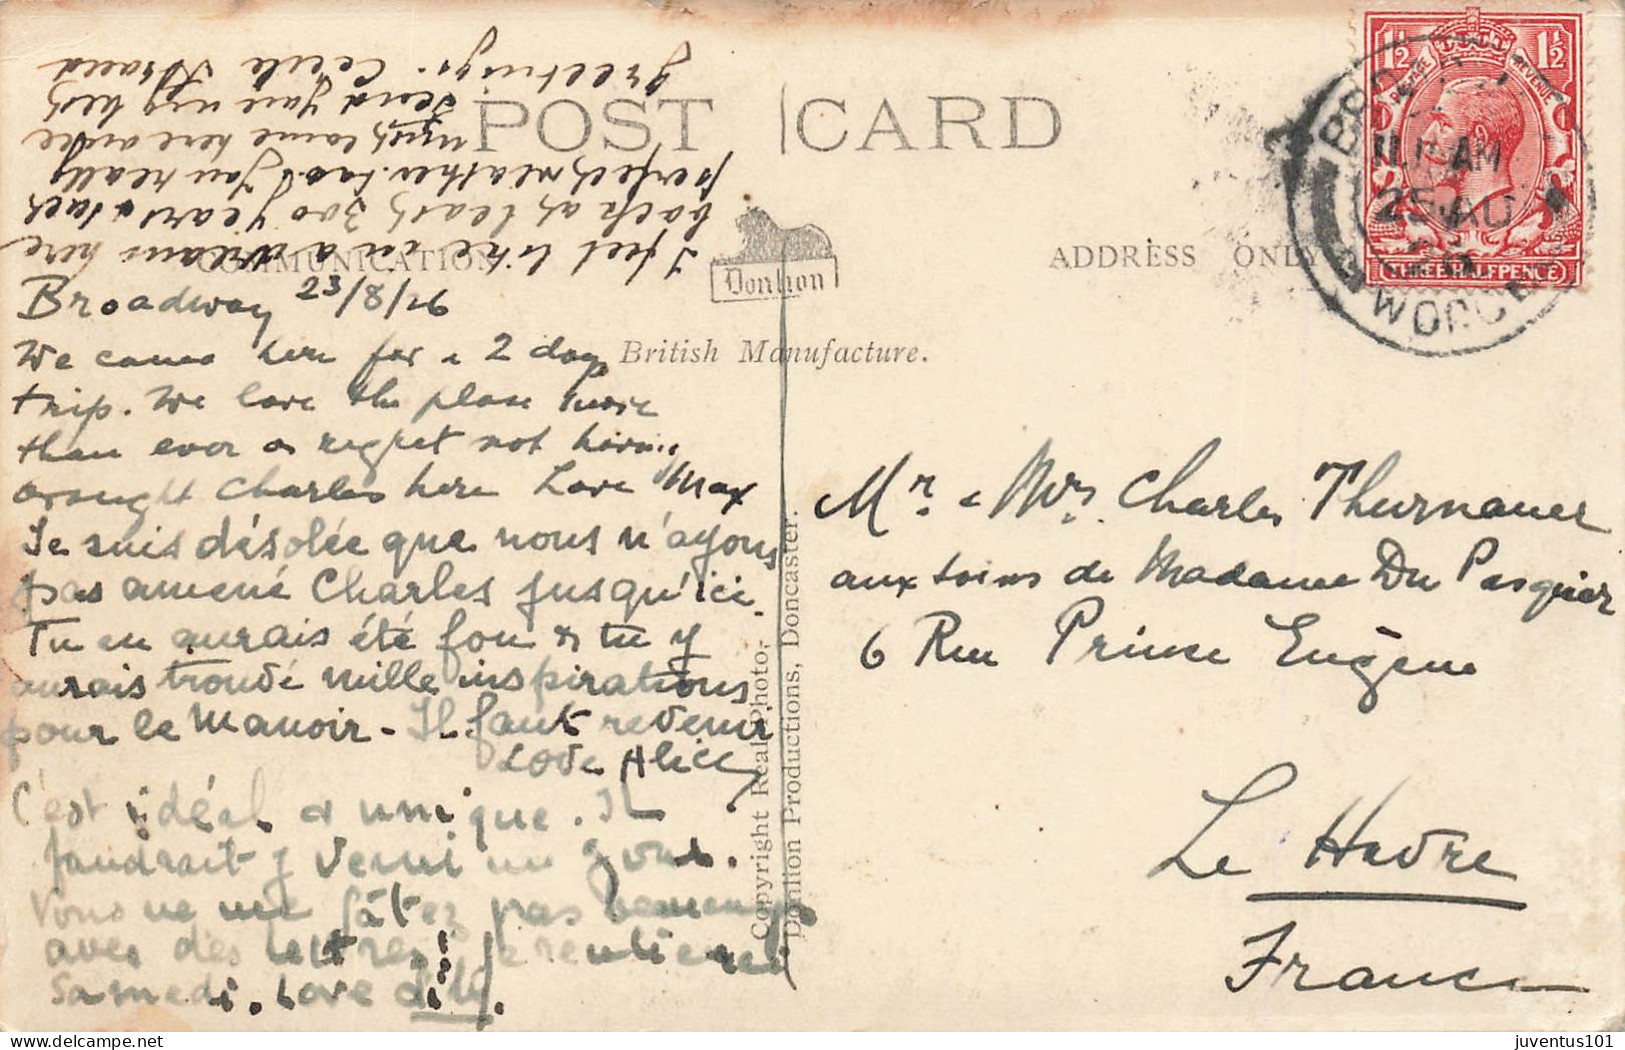 POST CARD
COMMUNICATION.
ADDRESS ONLY
Donlion
British Manufacture.
Copyright Real Photo,
Donlion Productions, Doncaster.
1½ 1½
POSTAGE REVENUE
THREE HALFPENCE
AM
25 AU
WORC
Broadway 23/8/26
We came here for a 2 day
trip. We love the place more
than ever & regret not having
brought Charles here Love Max
Je suis désolée que nous n'ayons
pas amené Charles jusqu'ici.
Tu en aurais été fou & tu y
aurais trouvé mille inspirations
pour le Manoir - Il faut revenir
Love Alice
C'est idéal & unique. Il
faudrait y venir un jour.
Vous ne me gâtez pas beaucoup
avec des lettres! Je rentierai
Samedi. Love dily.
I feel like in a dream here
back at least 300 years & such
perfect weather too! You really
must come here and see
Send you my best
greetings. Cecile
Mr. & Mrs. Charles Thurnauer
aux soins de Madame Du Pasquier
6 Rue Prince Eugène
Le Havre
France
juventus101